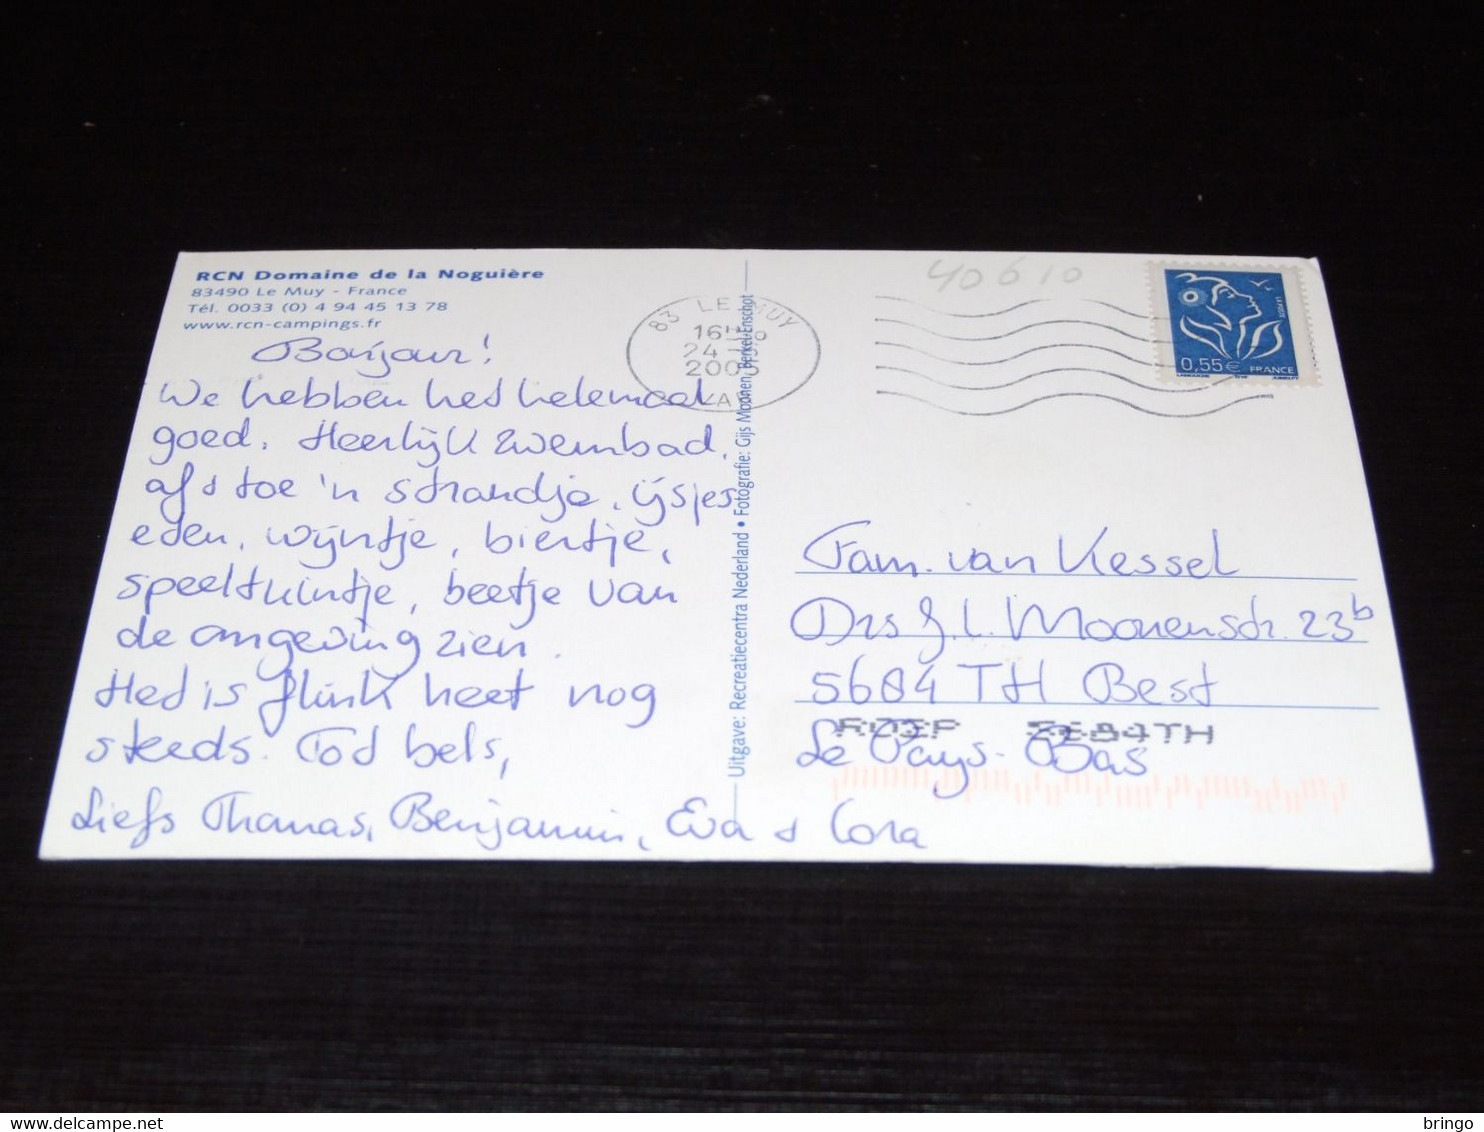 RCN Domaine de la Noguière
83490 Le Muy - France
Tél. 0033 (0) 4 94 45 13 78
www.rcn-campings.fr
Bonjour!
We hebben het helemaal
goed. Heerlijk zwembad,
af & toe 'n strandje, ijsjes
eten, wijntje, biertje,
speeltuintje, beetje van
de omgeving zien.
Het is flink heet nog
steeds. Tot bels,
Liefs Thomas, Benjamin, Eva & Cora
Uitgave: Recreatiecentra Nederland • Fotografie: Gijs Moonen, Berkel-Enschot
83 LE MUY
24
VAR
40610
LA POSTE
0,55€ FRANCE
Fam. van Kessel
Drs J.L. Moonenstr. 23b
5684 TH Best
Le Pays-Bas
5684TH
delcampe.net
bringo